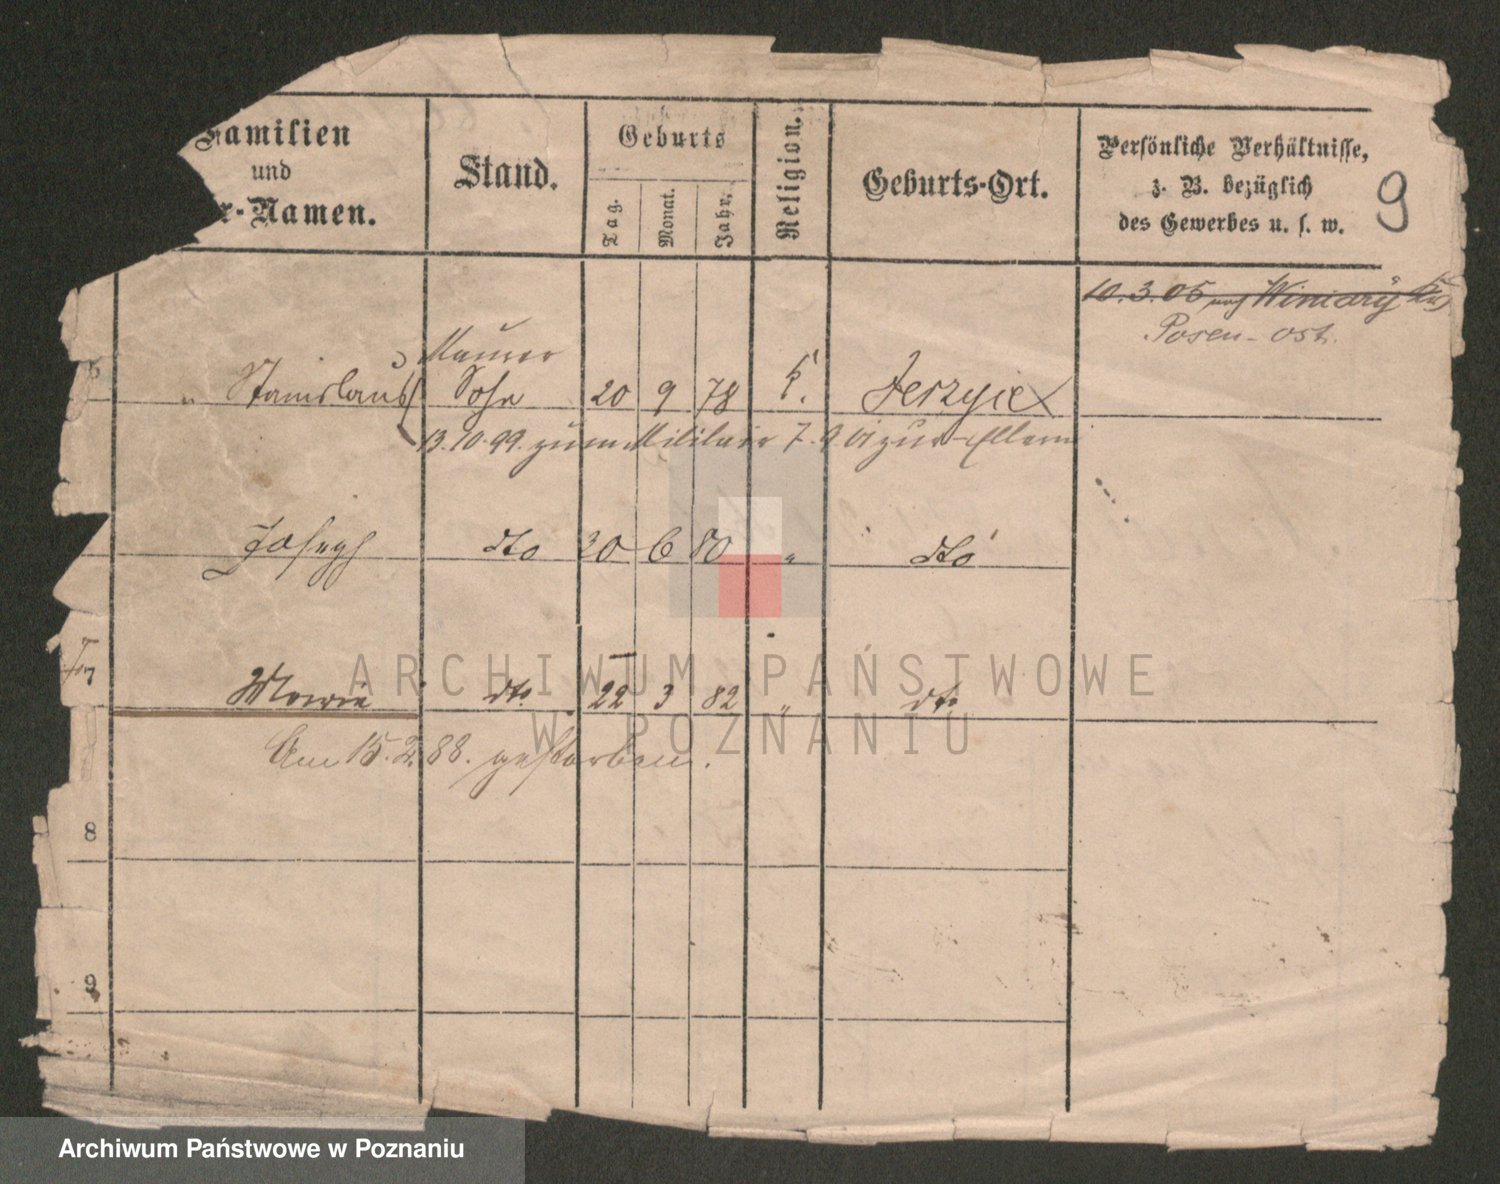 Familien
und
r-Namen.
Stand.
Geburts
Tag.
Monat.
Jahr.
Religion.
Geburts-Ort.
Persönliche Verhältnisse,
z. B. bezüglich
des Gewerbes u. s. w.
9
10.3.05 Winiary
Posen-ost.
Maurer
5 " Stanislaus Sohn 20 9 78 k. Jerzyce
13.10.99. zum Militair 7.9. zur
Joseph dto 30 6 80 " dto
7 Marie dto 22 3 82 " dto
Am 15.2.88. gestorben.
8
9
ARCHIWUM PAŃSTWOWE
W POZNANIU
Archiwum Państwowe w Poznaniu